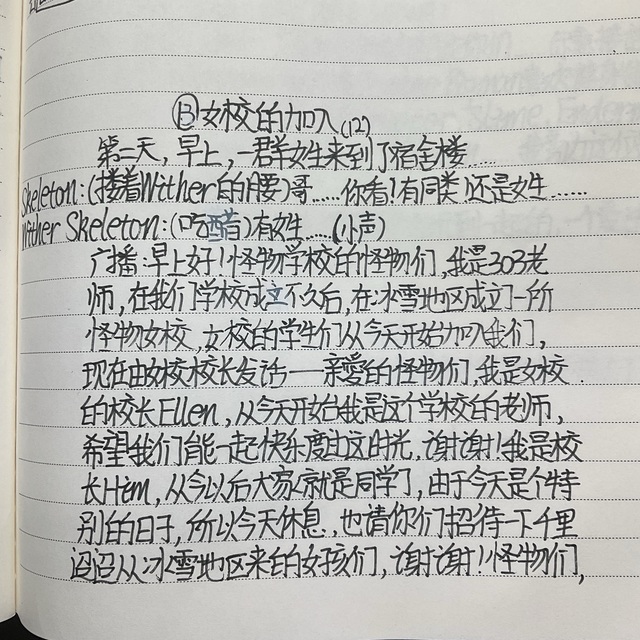 ⑬女校的加入(12)
第二天,早上,一群女生来到了宿舍楼……
Skeleton:(搂着Wither的腰)哥……你看!有同类!还是女生……
Wither Skeleton:(吃醋)有女生……(小声)
广播:早上好!怪物学校的怪物们,我是303老
师,在我们学校成立不久后,在冰雪地区成立了一所
怪物女校,女校的学生们从今天开始加入我们,
现在由女校校长发话——亲爱的怪物们,我是女校
的校长Ellen,从今天开始我是这个学校的老师,
希望我们能一起快乐度过这时光,谢谢!我是校
长Him,从今以后大家就是同学了,由于今天是个特
别的日子,所以今天休息,也请你们招待一下千里
迢迢从冰雪地区来的女孩们,谢谢!怪物们,